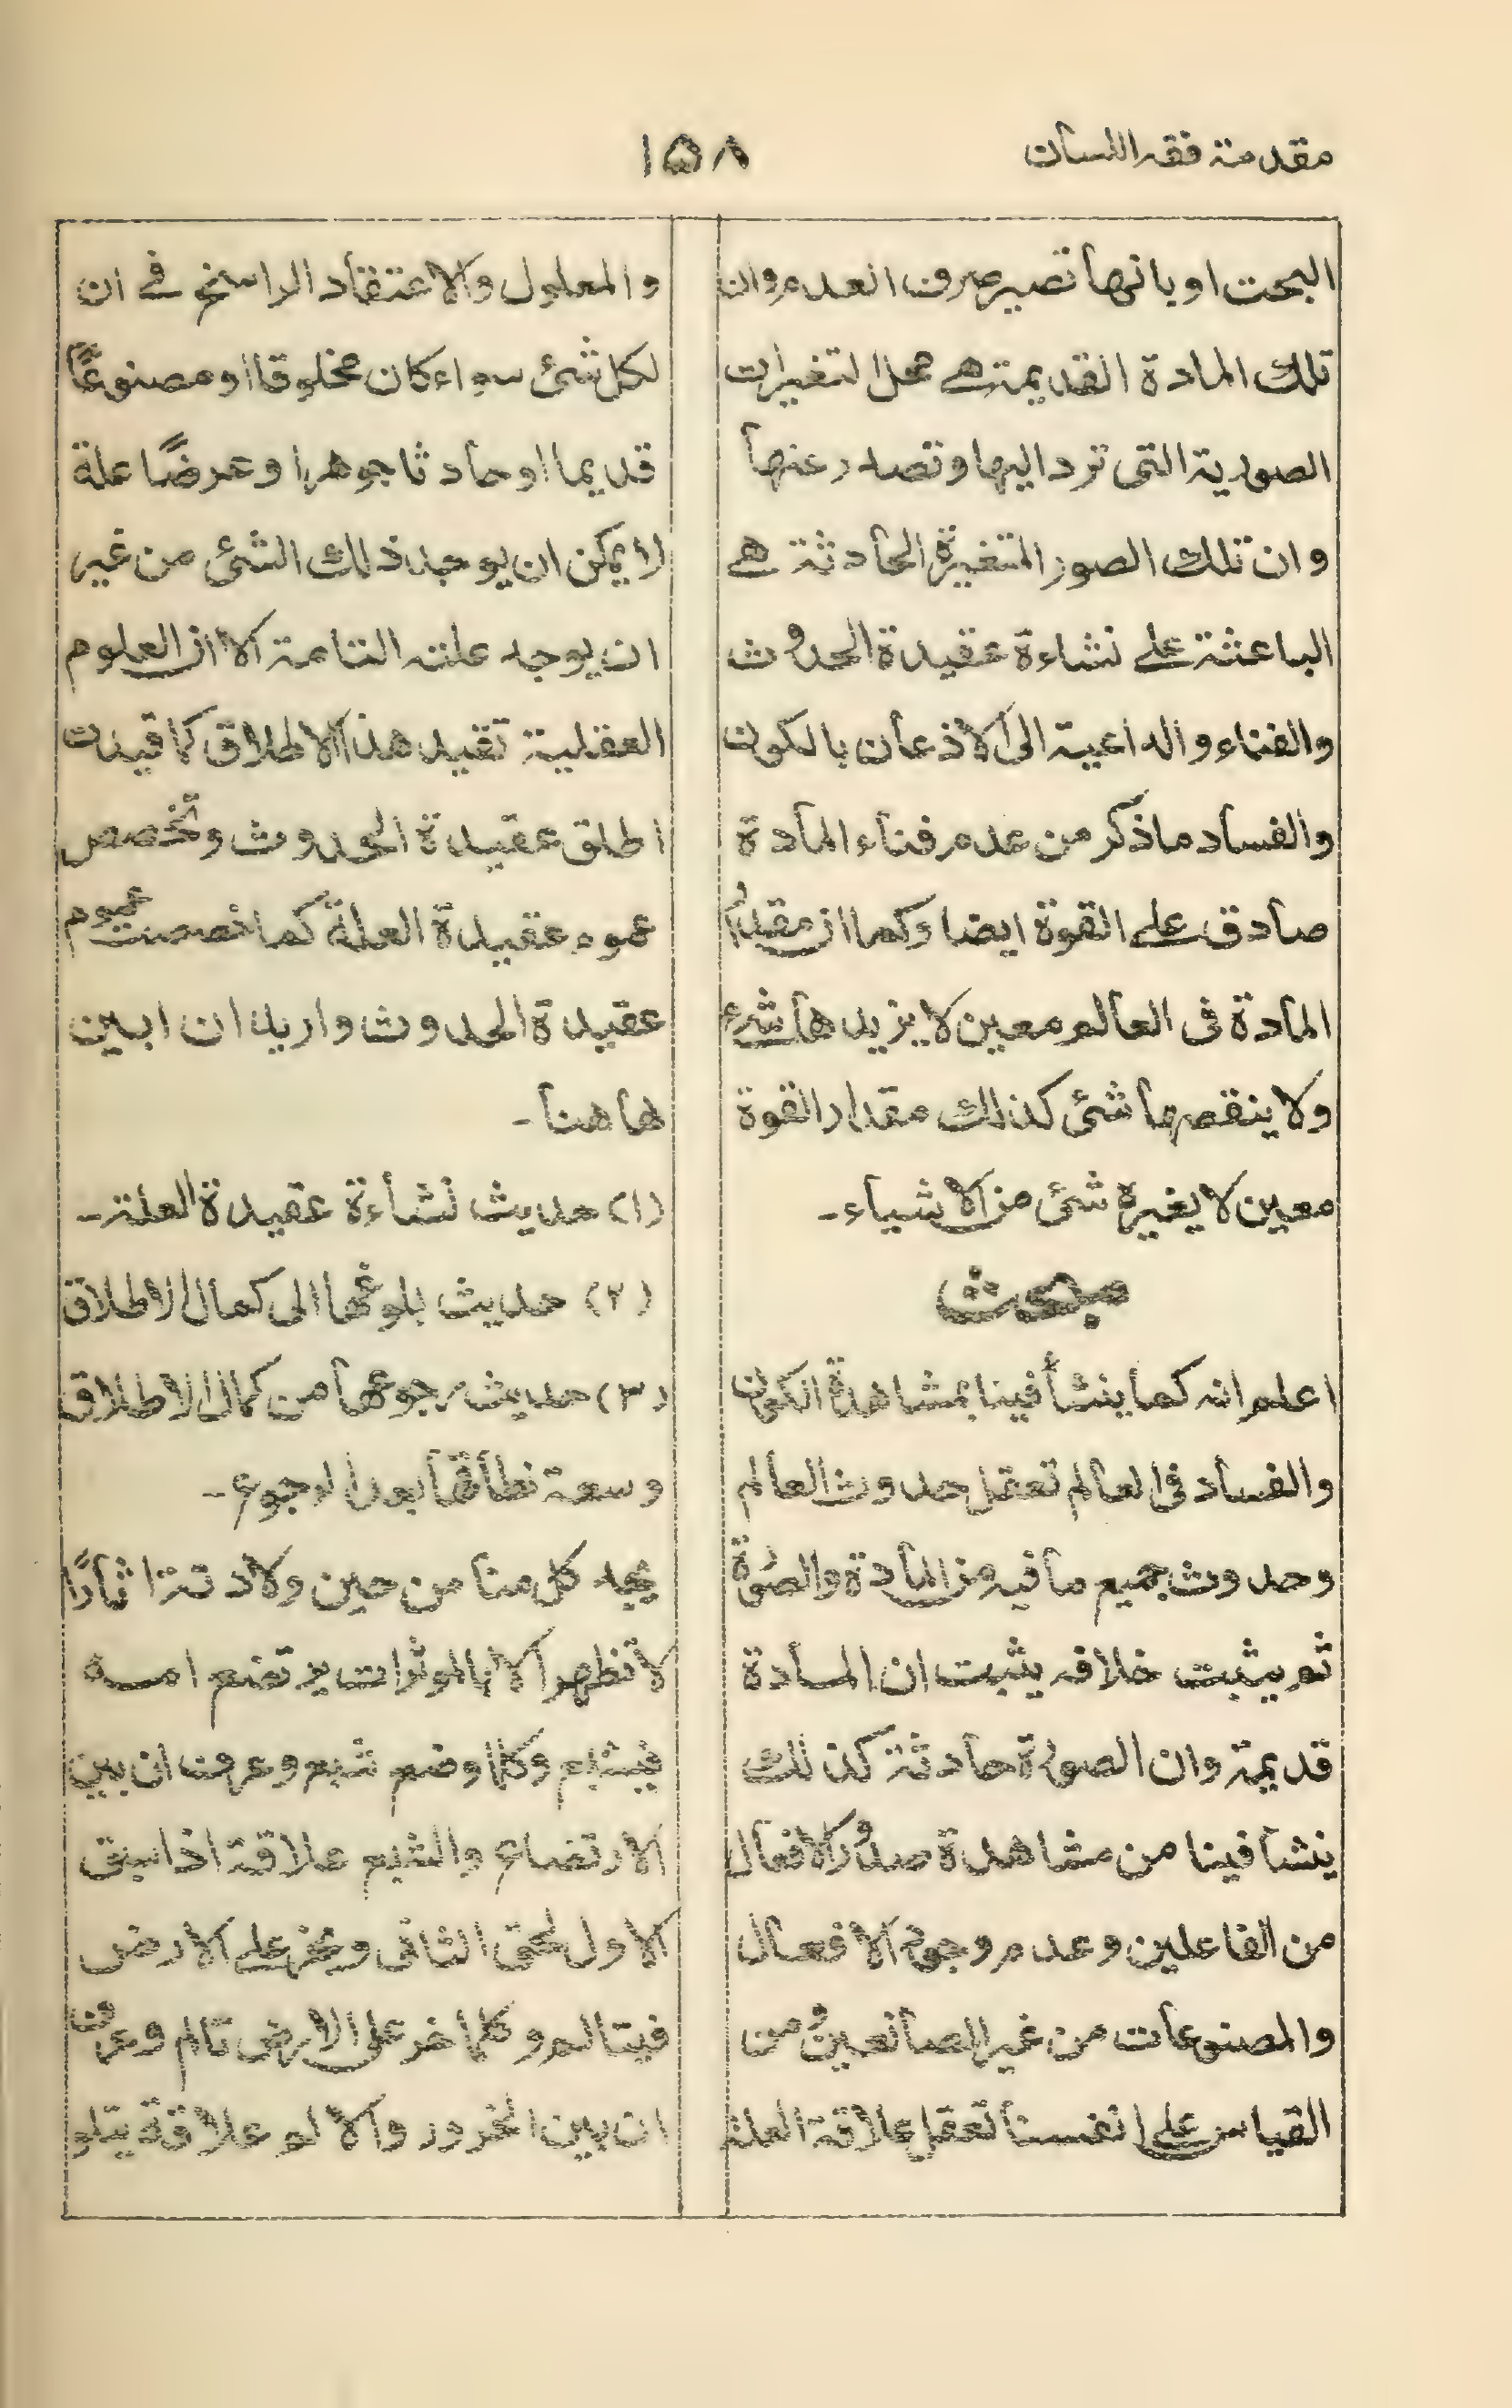 مقدمة فقه اللسان
١٥٨
البحت او بانها تصير صرف العدم وان
تلك المادة القديمة هے محل التغيرات
الصورية التى ترد اليها وتصدر عنها
وان تلك الصور المتغيرة الحادثة هے
الباعثة علے نشاءة عقيدة الحدوث
والفناء والداعية الى الاذعان بالكون
والفساد ماذكر من عدم فناء المادة
صادق علے القوة ايضا وكما ان مقدار
المادة فى العالم معين لا يزيدها شئ
ولا ينقصها شئ كذلك مقدار القوة
معين لا يغيره شئ من الاشياء ۔
مبحث
اعلم انه كما ينشأ فينا بمشاهدة الكون
والفساد فى العالم تعقل حدوث العالم
وحدوث جميع ما فيه من المادة والصورة
ثم يثبت خلافه يثبت ان المادة
قديمة وان الصورة حادثة كذلك
ينشأ فينا من مشاهدة صدور الافعال
من الفاعلين وعدم وجود الافعال
والمصنوعات من غير الصانعين ومن
القياس على انفسنا تعقل علاقة العلة
والمعلول والاعتقاد الراسخ فے ان
لكل شئ سواء كان مخلوقا او مصنوعًا
قديما او حادثا جوهرا وعرضًا علة
لا يمكن ان يوجد ذلك الشئ من غير
ان يوجد علته التامة الا ان العلوم
العقلية تقيد هذا الاطلاق كما قيدت
اطلق عقيدة الحدوث وتخصص
عموم عقيدة العلة كما خصصت عموم
عقيدة الحدوث واريد ان ابين
هاهنا ۔
(١) حديث نشأءة عقيدة العلة ۔
(٢) حديث بلوغها الى كمال الاطلاق
(٣) حديث رجوعها من كمال الاطلاق
وسعة نطاقها بعد الرجوع ۔
يجد كل منا من حين ولادته اثارًا
لا تظهر الا بالموثرات يرتضع امه
فيشبع وكلما رضع شبع وعرف ان بين
الارتضاع والشبع علاقة اذا سبق
الاول لحق الثانى ويخر علے الارض
فيتالم وكلما خر على الارض تالم وعرف
ان بين الخرور والالم علاقة يتلو